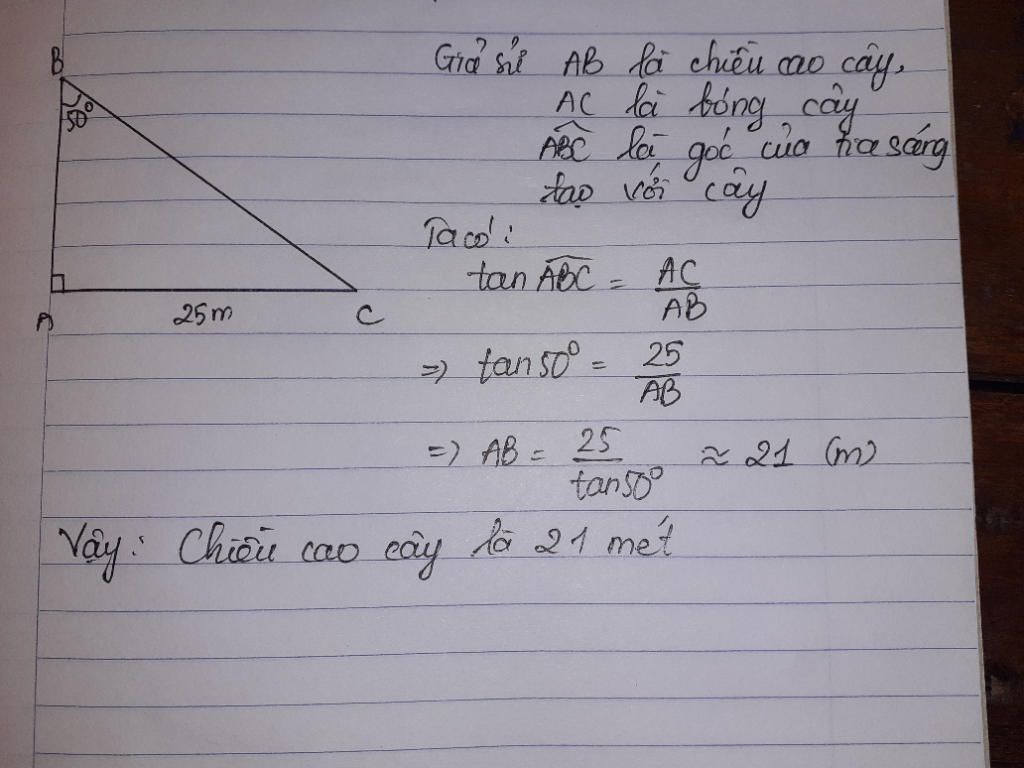 B
50°
A
25m
C
Giả sử AB là chiều cao cây,
AC là bóng cây
ABC là góc của tia sáng
tạo với cây
Ta có:
tan ABC = AC/AB
=> tan50° = 25/AB
=> AB = 25/tan50° ≈ 21 (m)
Vậy: Chiều cao cây là 21 mét